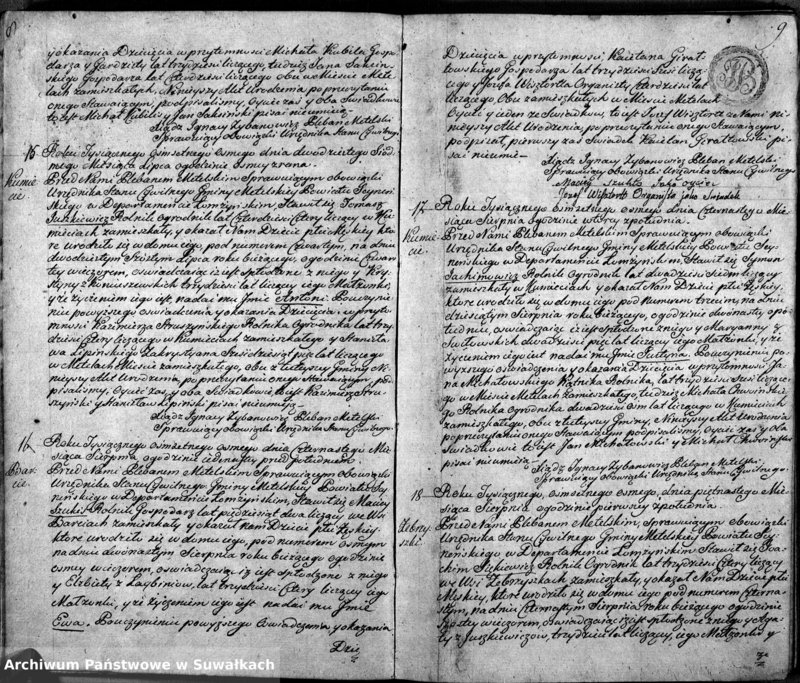 8
y okazania Dziecięcia w przytomności Michała Kubila Gospo
darza y Jerdziły lat trzydzieści liczącego, tudzież Jana Sakiń-
skiego Gospodarza lat Czterdzieści liczącego obu w Mieście Mete-
lach zamieszkałych. Ninieyszy Akt Urodzenia po przeczytaniu
onego Stawaiącym, podpisaliśmy, Oyciec zaś y oba Świadkowie
to iest Michał Kubila y Jan Sakiński pisać nieumieią.
Xiądz Ignacy Zybanowicz Pleban Metelski
Sprawuiący obowiązki Urzędnika Stanu Cywilnego.
15.
Kumie-
cie.
Roku Tysiącznego osmsetnego osmego dnia dwódziestego Siód-
mego Miesiąca Lipca o godzinie ósmey zrana.
Przed Nami Plebanem Metelskim Sprawuiącym obowiązki
Urzędnika Stanu Cywilnego Gminy Metelskiey Powiatu Seyneń-
skiego w Departamencie Łomżyńskim, Stawił się Tomasz
Juszkiewicz Rolnik ogrodnik lat Czterdzieści liczący w Ku-
mieciach zamieszkały, y okazał Nam Dziecie płci Męskiey które
się urodziło w domu iego, pod numerem Czwartym, na dniu
dwódziestym Szóstym Lipca roku bieżącego, o godzinie Czwar-
tey wieczorem, oświadczaiąc iż iest spłodzone z niego y Kry-
styny z trzydzieści lat liczącey iego Małżonki,
y że życzeniem iego iest nadać mu Jmie Antoni. Po uczynie-
niu powyższego oświadczenia y okazania Dziecięcia, w przyto-
mności Kazimierza Struzyńskiego Rolnika Ogrodnika lat trzy-
dzieści Cztery liczącego w Kumieciach zamieszkałego y Stanisła-
wa Lipińskiego Zakrystyana Sześćdziesiąt pięć lat liczącego
w Metelach Mieście zamieszkałego, obu z tuteyszey Gminy, Ni-
nieyszy Akt Urodzenia, po przeczytaniu onego Stawaiącym pod-
pisaliśmy, Oyciec zaś y oba Świadkowie to iest Kazimierz Stru-
zyński y Stanisław Lipiński pisać nieumieią.
Xiądz Ignacy Zybanowicz Pleban Metelski
Sprawuiący obowiązki Urzędnika Stanu Cywilnego.
16.
Barcie
Roku Tysiącznego osmsetnego osmego dnia Czternastego Mie-
siąca Sierpnia o godzinie iedenastey przed południem.
Przed Nami Plebanem Metelskim Sprawuiącym obowiązki
Urzędnika Stanu Cywilnego Gminy Metelskiey Powiatu Sey-
neńskiego w Departamencie Łomżyńskim, Stawił się Maciey
Szuhto Rolnik Gospodarz lat pięćdziesiąt dwa liczący we Wsi
Barciach zamieszkały y okazał nam Dziecie płci Żeńskiey
które urodziło się w domu iego, pod numerem osmym
na dniu dwónastym Sierpnia roku bieżącego o godzinie
osmey wieczorem, oświadczaiąc iż iest spłodzone z niego
y Elżbiety z lat trzydzieści Cztery liczącey iego
Małżonki, y że życzeniem iego iest nadać mu Jmie
Ewa. Po uczynieniu powyższego oświadczenia y okazania
Dzie
9
Dziecięcia w przytomności Kaietana Girat-
kowskiego Gospodarza lat trzydzieści Sześć liczą-
cego y Józefa Wisztorta Organisty Czterdzieści lat
liczącego obu zamieszkałych w Mieście Metelach
Oyciec y ieden ze Świadków to iest Józef Wisztort z Nami Ni-
nieyszy Akt Urodzenia, po przeczytaniu onego Stawaiącym,
podpisał, pierwszy zaś Świadek Kaietan Giratkowski pi-
sać nieumie.
Xiądz Ignacy Zybanowicz Pleban Metelski
Sprawuiący obowiązki Urzędnika Stanu Cywilnego
Maciey Szuhto Jako oyciec
Józef Wisztort Organista jako Świadek
17.
Kumie-
cie.
Roku Tysiącznego osmsetnego osmego dnia Czternastego Mie-
siąca Sierpnia o godzinie wtórey z południa.
Przed Nami Plebanem Metelskim Sprawuiącym obowiązki
Urzędnika Stanu Cywilnego Gminy Metelskiey Powiatu Sey-
neńskiego w Departamencie Łomżyńskim, Stawił się Symon
Jachimowicz Rolnik Ogrodnik lat dwadzieścia Siedm liczący
zamieszkały w Kumieciach y okazał Nam Dziecie płci Żeńskiey,
które urodziło się w domu iego pod numerem trzecim, na dniu
dziesiątym Sierpnia roku bieżącego, o godzinie dwónastey o po-
łudniu, oświadczaiąc iż iest spłodzone z niego y Maryanny z
dwadzieścia pięć lat liczącey iego Małżonki, y że
życzeniem iego iest nadać mu Jmie Justyna. Po uczynieniu po-
wyższego oświadczenia y okazania Dziecięcia w przytomności Ja-
na Mechałowskiego Rolnika, lat trzydzieści Sześć liczące-
go w Mieście Metelach zamieszkałego, tudzież Michała
Rolnika Ogrodnika dwadzieścia osm lat liczącego w Kumieciach
zamieszkałego, obu z tuteyszey Gminy, Ninieyszy Akt Urodzenia
po przeczytaniu onego Stawaiącym podpisaliśmy, Oyciec zaś y oba
Świadkowie to iest Jan Mechałowski y Michał
pisać nieumieią.
Xiądz Ignacy Zybanowicz Pleban Metelski
Sprawuiący obowiązki Urzędnika Stanu Cywilnego.
18.
Zebry-
szki.
Roku Tysiącznego, osmsetnego osmego, dnia piętnastego Mie-
siąca Sierpnia o godzinie pierwszey z południa.
Przed Nami Plebanem Metelskim, Sprawuiącym obowiązki
Urzędnika Stanu Cywilnego Gminy Metelskiey Powiatu Sey-
neńskiego w Departamencie Łomżyńskim Stawił się Joa-
chim Rolnik Ogrodnik lat trzydzieści Cztery liczący
we Wsi Zebryszkach zamieszkały, y okazał Nam Dziecie płci
Męskiey, które urodziło się w domu iego pod numerem Czterna-
stym, na dniu Czternastym Sierpnia roku bieżącego o godzinie
Szóstey wieczorem, oświadczaiąc iż iest spłodzone z niego y Aga-
ty z Juszkiewiczow, trzydzieści lat liczącey, iego Małżonki y
że
Archiwum Państwowe w Suwałkach